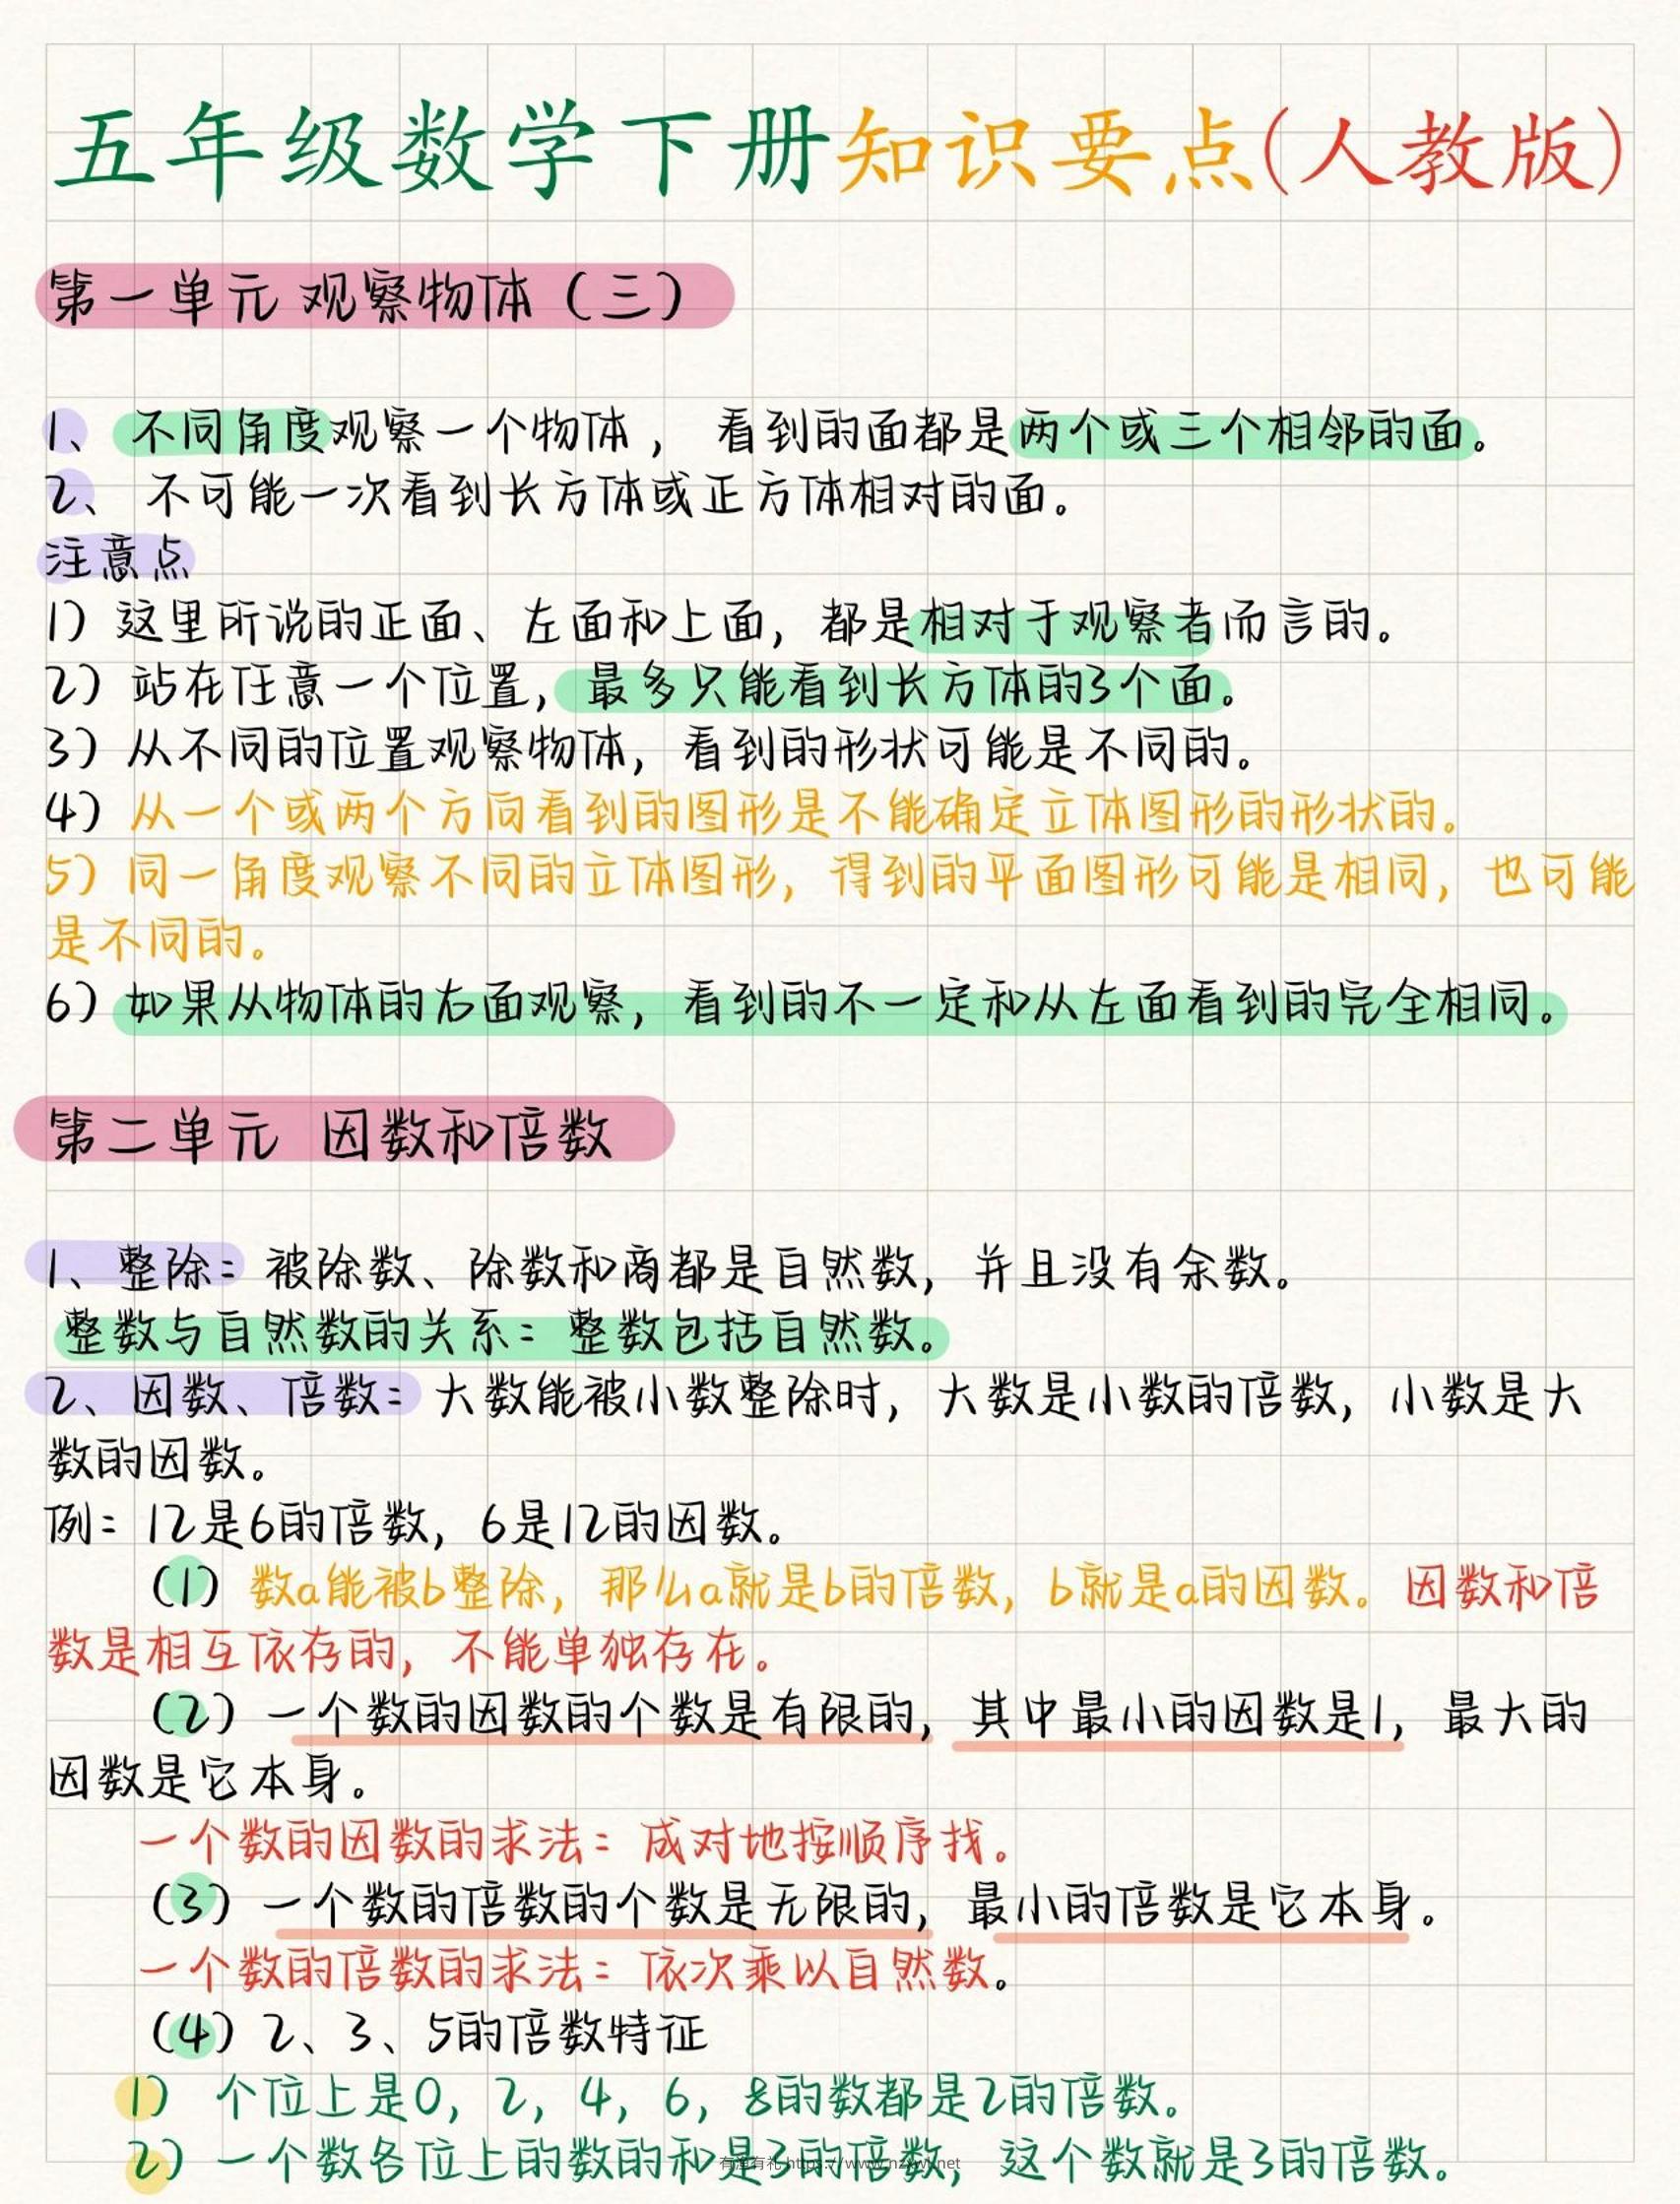 五年级数学下册知识要点(人教版)
第一单元 观察物体（三）
1、 不同角度观察一个物体， 看到的面都是两个或三个相邻的面。
2、 不可能一次看到长方体或正方体相对的面。
注意点
1）这里所说的正面、左面和上面，都是相对于观察者而言的。
2）站在任意一个位置， 最多只能看到长方体的3个面。
3）从不同的位置观察物体，看到的形状可能是不同的。
4）从一个或两个方向看到的图形是不能确定立体图形的形状的。
5）同一角度观察不同的立体图形，得到的平面图形可能是相同，也可能
是不同的。
6）如果从物体的右面观察，看到的不一定和从左面看到的完全相同。
第二单元 因数和倍数
1、整除：被除数、除数和商都是自然数，并且没有余数。
整数与自然数的关系：整数包括自然数。
2、因数、倍数：大数能被小数整除时，大数是小数的倍数，小数是大
数的因数。
例：12是6的倍数，6是12的因数。
（1）数a能被b整除，那么a就是b的倍数，b就是a的因数。因数和倍
数是相互依存的，不能单独存在。
（2）一个数的因数的个数是有限的，其中最小的因数是1，最大的
因数是它本身。
一个数的因数的求法：成对地按顺序找。
（3）一个数的倍数的个数是无限的，最小的倍数是它本身。
一个数的倍数的求法：依次乘以自然数。
（4）2、3、5的倍数特征
1） 个位上是0，2，4，6，8的数都是2的倍数。
2）一个数各位上的数的和是3的倍数，这个数就是3的倍数。